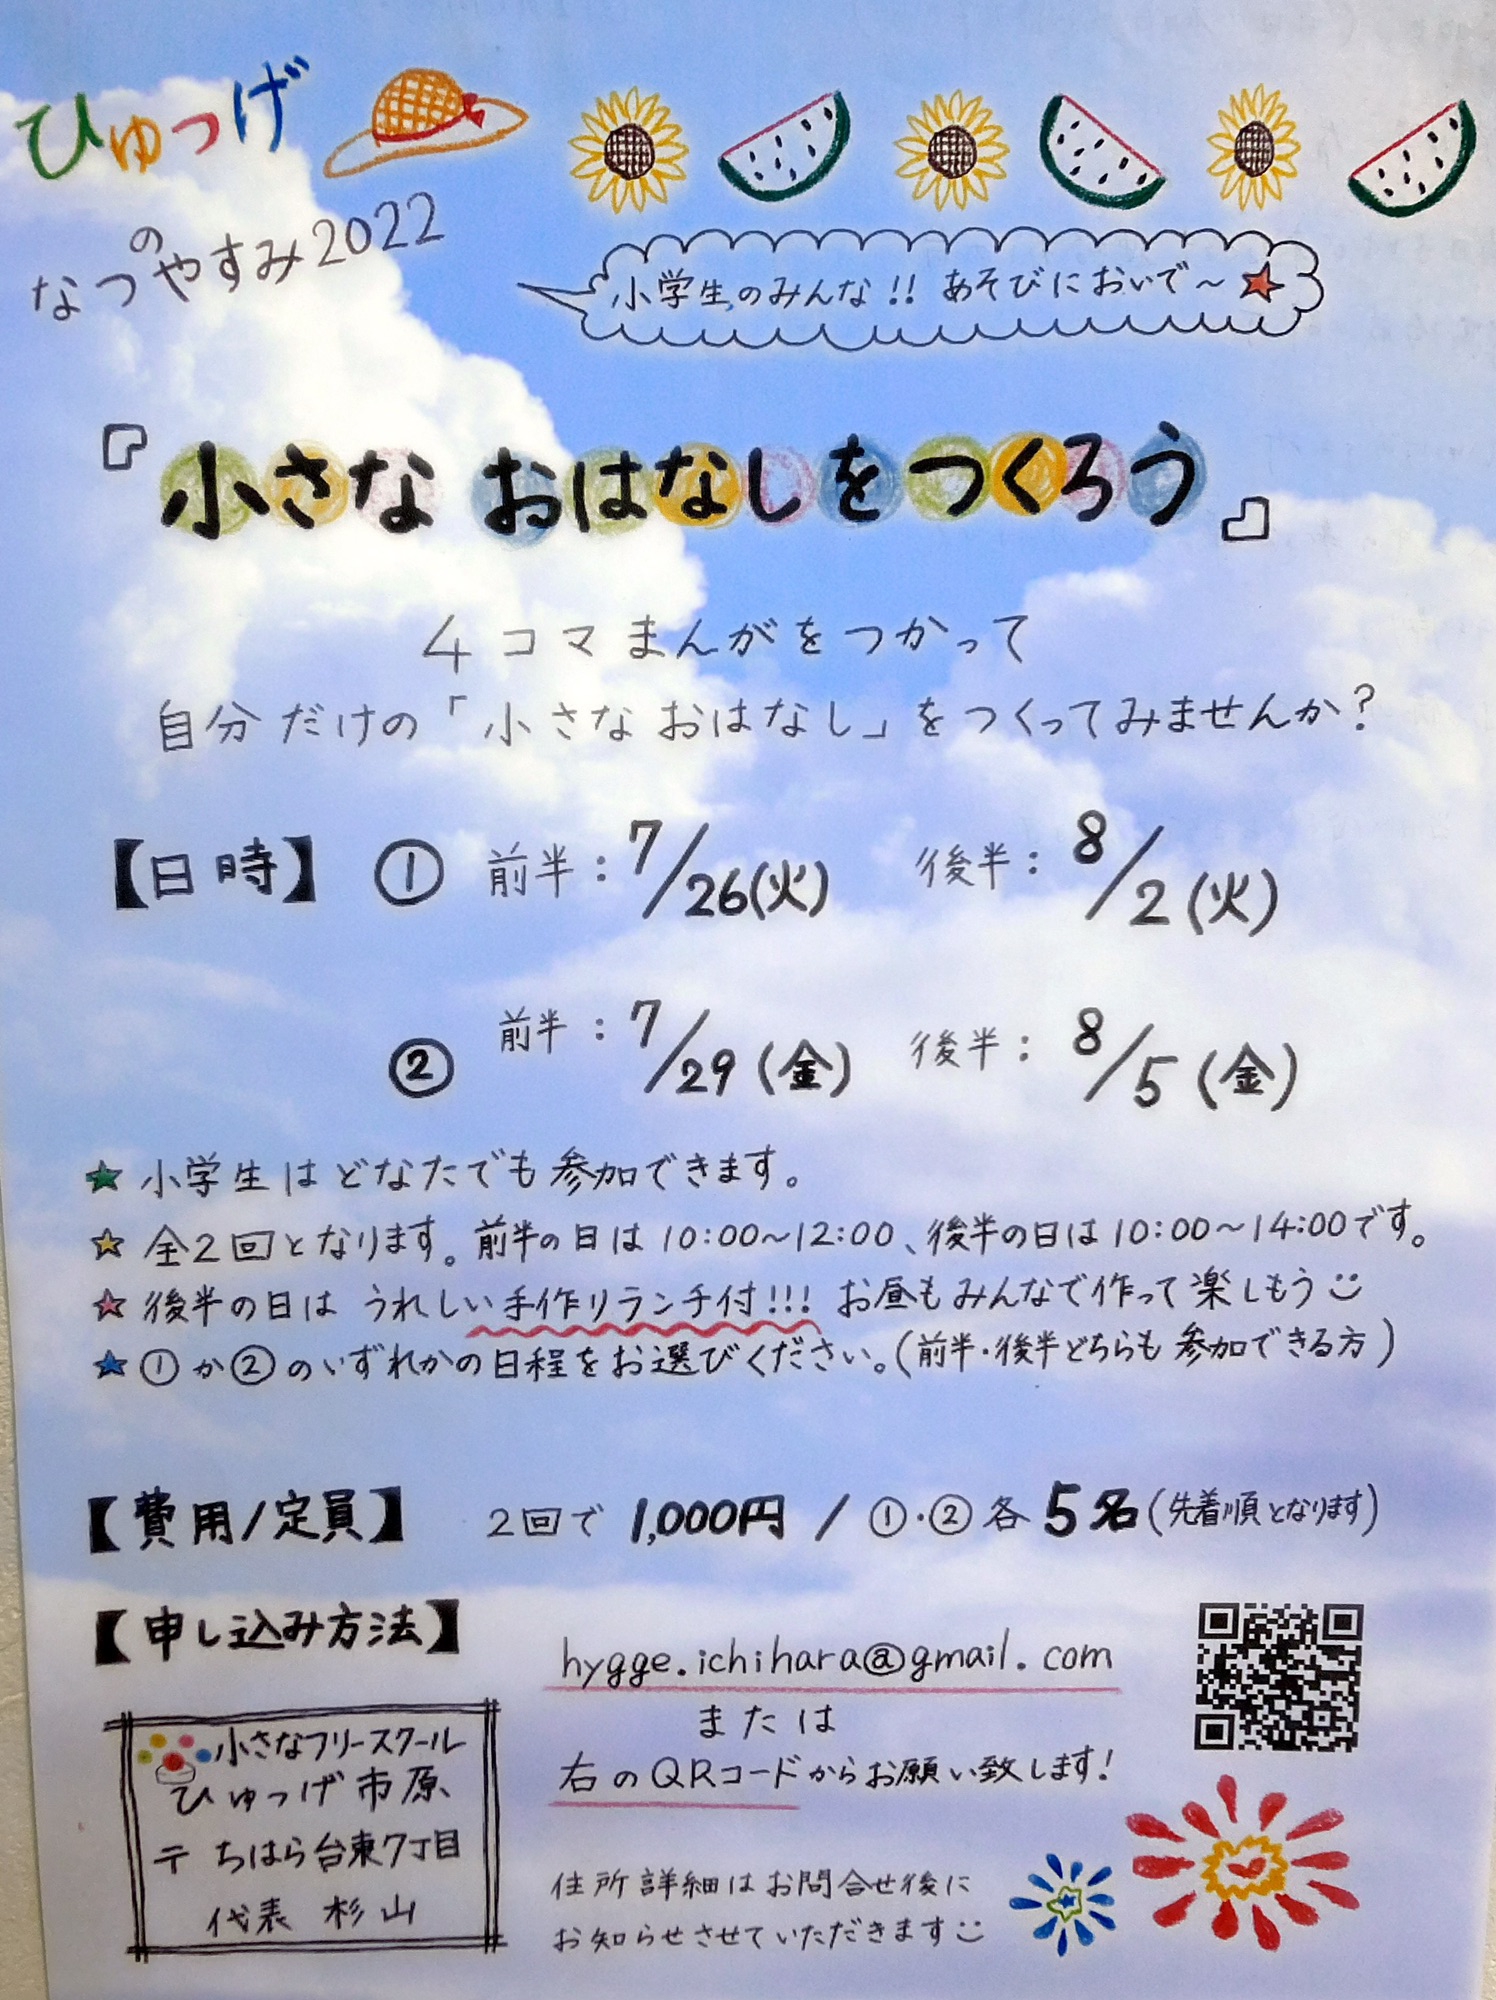 ひゅっげ
の
なつやすみ2022
小学生のみんな!! あそびにおいで〜
『小さな おはなしをつくろう』
4コマまんがをつかって
自分だけの「小さなおはなし」をつくってみませんか?
【日時】 ① 前半:7/26(火) 後半:8/2(火)
② 前半:7/29(金) 後半:8/5(金)
★小学生はどなたでも参加できます。
★全2回となります。前半の日は10:00〜12:00、後半の日は10:00〜14:00です。
★後半の日は うれしい手作りランチ付!!! お昼もみんなで作って楽しもう
★①か②のいずれかの日程をお選びください。(前半・後半どちらも参加できる方)
【費用/定員】 2回で 1,000円 / ①・② 各5名(先着順となります)
【申し込み方法】
hygge.ichihara@gmail.com
または
右のQRコードからお願い致します!
小さなフリースクール
ひゅっげ市原
〒 ちはら台東7丁目
代表 杉山
住所詳細はお問合せ後に
お知らせさせていただきます